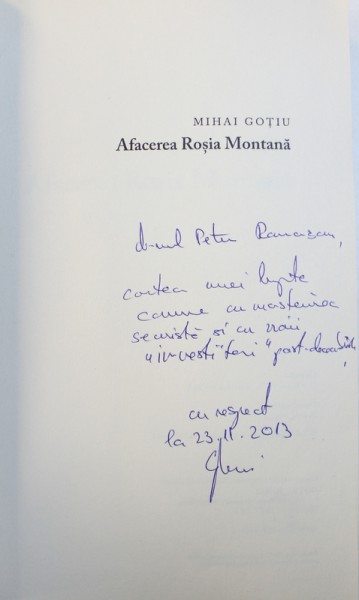 MIHAI GOȚIU
Afacerea Roșia Montană
d-nul Petru Ramazan,
cartea unei lupte
comune cu moștenirea
securistă și cu noii
"investitori" post-decembriști,
cu respect
la 23.11.2013